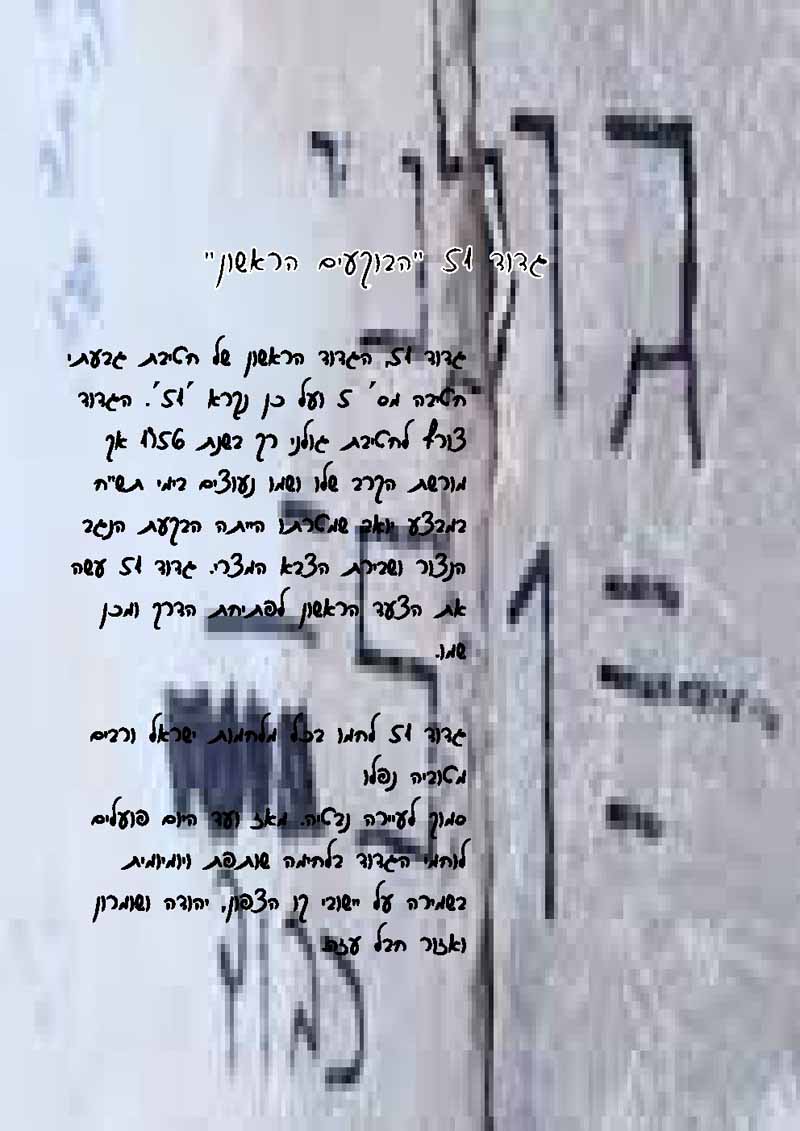 גדוד 51 "הבוקעים הראשון"
גדוד 51, הגדוד הראשון של חטיבת גבעתי
חטיבה מס' 5 ועל כן נקרא '51'. הגדוד
צורף לחטיבת גולני רק בשנת 1956 אך
מורשת הקרב שלו ושמו נעוצים בימי תש"ח
במבצע יואב שמטרתו הייתה הבקעת הנגב
הנצור ושבירת הצבא המצרי. גדוד 51 עשה
את הצעד הראשון לפתיחת הדרך ומכן
שמו.
גדוד 51 לחמו בכל מלחמות ישראל ורבים
מטוביה נפלו
סמוך לעיירה נבטיה. מאז ועד היום פועלים
לוחמי הגדוד בלחימה שוטפת ויומיומית
בשמירה על יישובי קו הצפון, יהודה ושומרון
ואזור חבל עזה